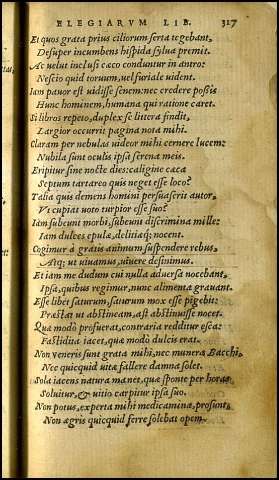 ELEGIARVM LIB. 317
Et quos grata prius ciliorum serta tegebant,
Desuper incumbens hispida sylua premit.
Ac velut inclusi cæco conduntur in antro:
Nescio quid toruum, vel furiale vident.
Iam pauor est vidisse senem: nec credere possis
Hunc hominem, humana qui ratione caret.
Si libros repeto, duplex se littera findit,
Largior occurrit pagina nota mihi.
Claram per nebulas videor mihi cernere lucem:
Nubila sunt oculis ipsa serena meis.
Eripitur sine nocte dies: caligine cæca
Septum tartareo quis neget esse loco?
Talia quis demens homini persuaserit autor,
Vt cupiat voto turpior esse suo?
Iam subeunt morbi, subeunt discrimina mille:
Iam dulces epulæ, delitiæq; nocent.
Cogimur à gratis animum suspendere rebus,
Atq; vt viuamus, viuere desinimus.
Et iam me dudum cui nulla aduersa nocebant,
Ipsa, quibus regimur, nunc alimenta grauant.
Esse libet saturum, saturum mox esse pigebit:
Præstat vt abstineam, ast abstinuisse nocet.
Quæ modò profuerat, contraria redditur esca:
Fastidita iacet, quæ modò dulcis erat.
Non veneris sunt grata mihi, nec munera Bacchi,
Nec quicquid vitæ fallere damna solet.
Sola iacens natura manet, quæ sponte per horas
Soluitur, & vitio carpitur ipsa suo.
Non potus, experta mihi medicamina, prosunt,
Non ægris quicquid ferre solebat opem.